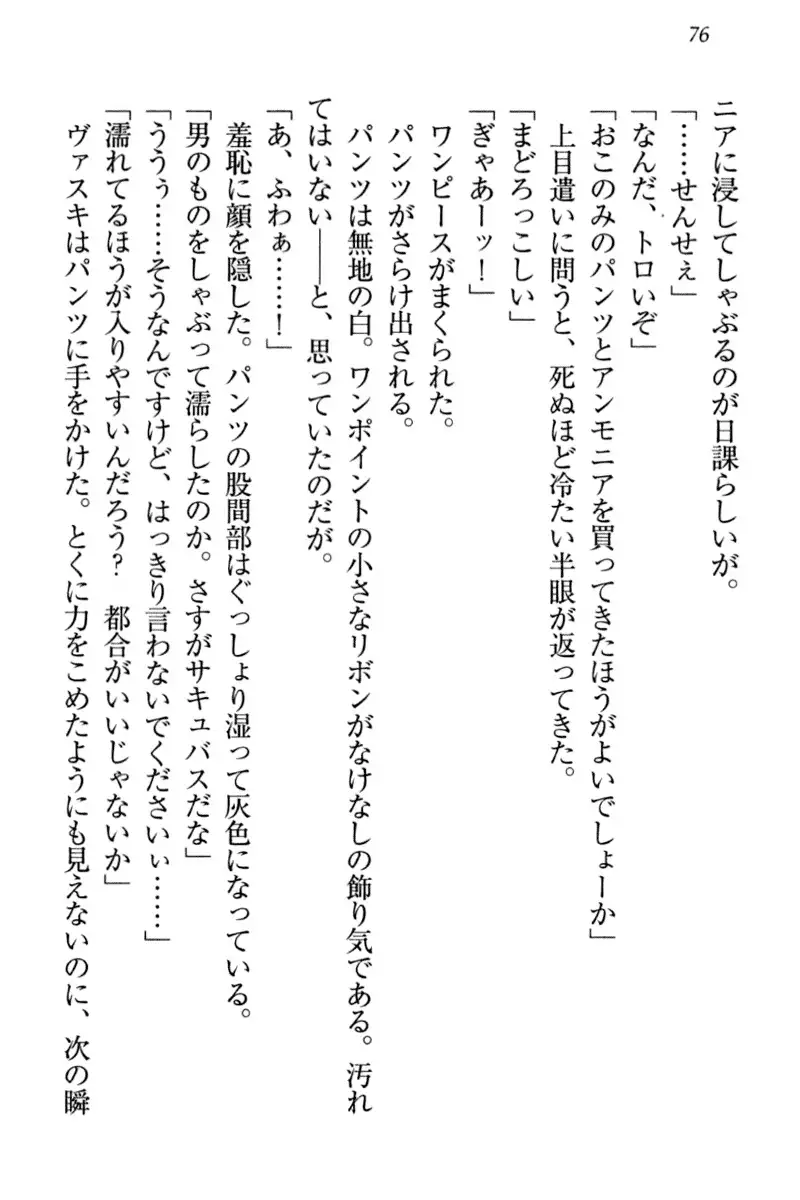 76
ニアに浸してしゃぶるのが日課らしいが。
「……せんせぇ」
「なんだ、トロいぞ」
「おこのみのパンツとアンモニアを買ってきたほうがよいでしょーか」
上目遣いに問うと、死ぬほど冷たい半眼が返ってきた。
「まどろっこしい」
「ぎゃあーッ！」
ワンピースがまくられた。
パンツがさらけ出される。
パンツは無地の白。ワンポイントの小さなリボンがなけなしの飾り気である。汚れ
てはいない――と、思っていたのだが。
「あ、ふわぁ……！」
羞恥に顔を隠した。パンツの股間部はぐっしょり湿って灰色になっている。
「男のものをしゃぶって濡らしたのか。さすがサキュバスだな」
「ううぅ……そうなんですけど、はっきり言わないでくださいぃ……」
「濡れてるほうが入りやすいんだろう？　都合がいいじゃないか」
ヴァスキはパンツに手をかけた。とくに力をこめたようにも見えないのに、次の瞬